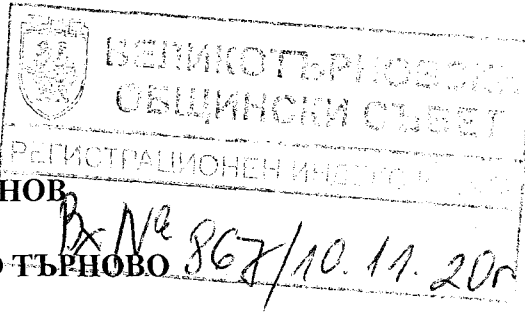 ВЕЛИКОТЪРНОВСКИ
ОБЩИНСКИ СЪВЕТ
РЕГИСТРАЦИОНЕН ИНДЕКС
НОВ
Вх № 867/10.11.20г
ТЪРНОВО